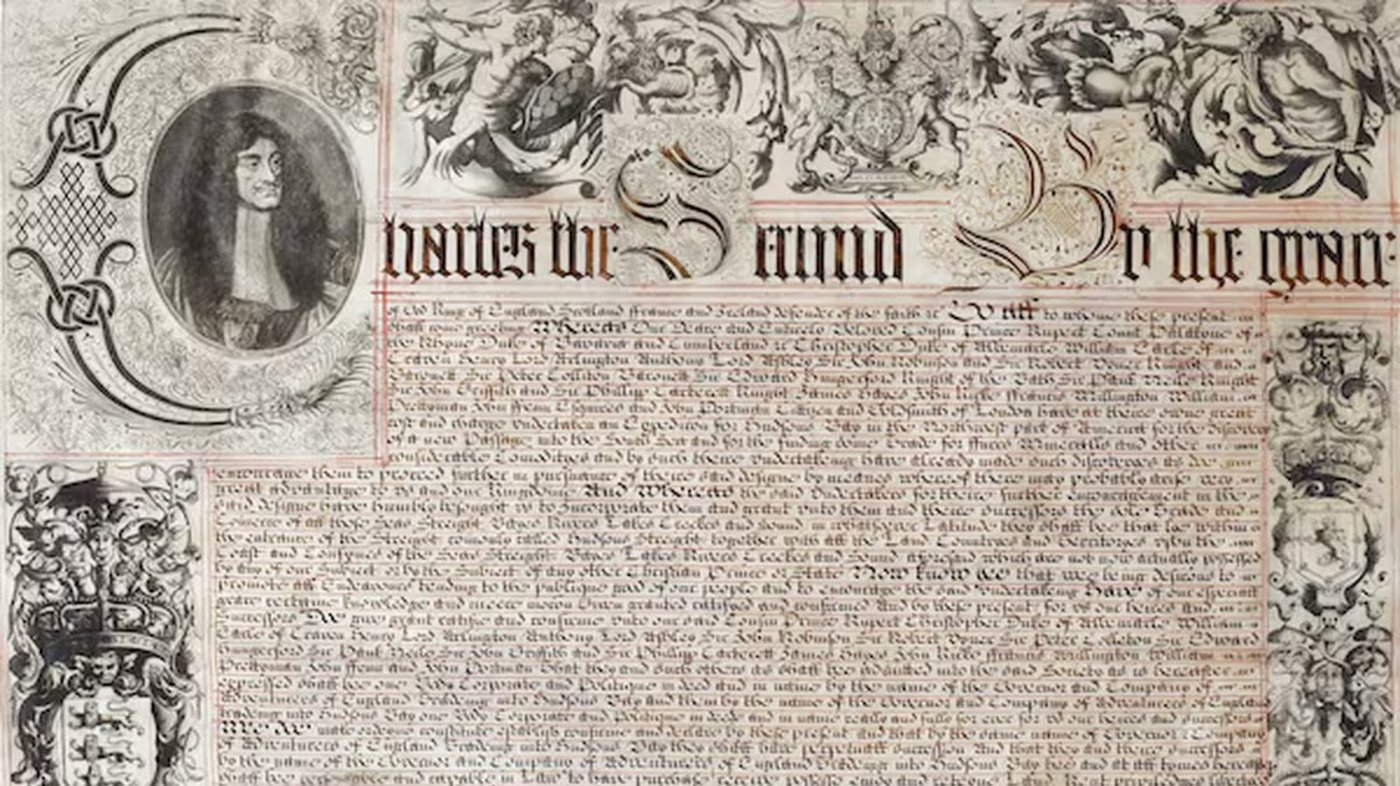 Charles the Second By the grace
of God King of England Scotland ffrance and Ireland defender of the faith &c To all to whome these present
shall come greeting Whereas Our Deare and Entirely Beloved Cousin Prince Rupert Count Palatyne of
the Rhyne Duke of Bavaria and Cumberland &c Christopher Duke of Albemarle William Earle of
Craven Henry Lord Arlington Anthony Lord Ashley Sir John Robinson and Sir Robert Vyner Knights and
Baronetts Sir Peter Colliton Baronett Sir Edward Hungerford Knight of the Bath Sir Paul Neile Knight
Sir John Griffith and Sir Phillip Carterett Knight James Hayes John Kirke ffrancis Millington William
Prettyman John ffenn Esquires and John Portman Cittizen and Goldsmith of London have at theire owne great
cost and charge undertaken an Expedicon for Hudsons Bay in the Northwest part of America for the discovery
of a new Passage into the South Sea and for the finding some Trade for ffurrs Mineralls and other
considerable Comodityes and by such theire undertakeing have already made such discoveryes as doe
encourage them to proceed further in pursuance of theire said designe by meanes whereof there may probably arise very
great advantage to us and our Kingdome And Whereas the said Undertakers for theire further encouragement in the
said designe have humbly besought us to Incorporate them and grant unto them and theire successors the sole Trade and
Comerce of all those Seas Streights Bayes Rivers Lakes Creekes and Sounds in whatsoever Latitude they shall bee that lye within
the entrance of the Streight comonly called Hudsons Streight together with all the Land Countryes and Territoryes upon the
Coast and Confynes of the Seas Streight Bayes Lakes Rivers Creekes and Sound aforesaid which are not now actually possessed
by any of our Subject or by the Subject of any other Christian Prince or State Now know yee that wee being desirous to
promote all Endeavours tending to the publique good of our people and to encourage the said undertakeing Have of our especiall
grace certaine knowledge and meere mocon Given granted ratifyed and confirmed And by these present for us our heires and
successors Doe give grant ratifie and confirme unto our said Cousin Prince Rupert Christopher Duke of Albemarle William
Earle of Craven Henry Lord Arlington Anthony Lord Ashley Sir John Robinson Sir Robert Vyner Sir Peter Colleton Sir Edward
Hungerford Sir Paul Neile Sir John Griffith and Sir Phillip Carterett James Hayes John Kirke ffrancis Millington William
Prettyman John ffenn and John Portman That they and such others as shall bee admitted into the said Society as is hereafter
expressed shall bee one Body Corporate and Politique in deed and in name by the name of the Governor and Company of
Adventurers of England Tradeing into Hudsons Bay and them by the name of the Governor and Company of Adventurers of England
Tradeing into Hudsons Bay one Body Corporate and Politique in deed and in name really and fully for ever for us our heires and successors
Wee Doe make ordeyne constitute establish confirme and declare by these present and that by the same name of Governor & Company
of Adventurers of England Tradeing into Hudsons Bay they shall have perpetuall succession And that they and theire successors
by the name of the Governor and Company of Adventurers of England Tradeing into Hudsons Bay bee and at all tymes hereafter
shall bee personable and capable in Law to have purchase receive possesse enjoy and reteyne Land Rent priviledges